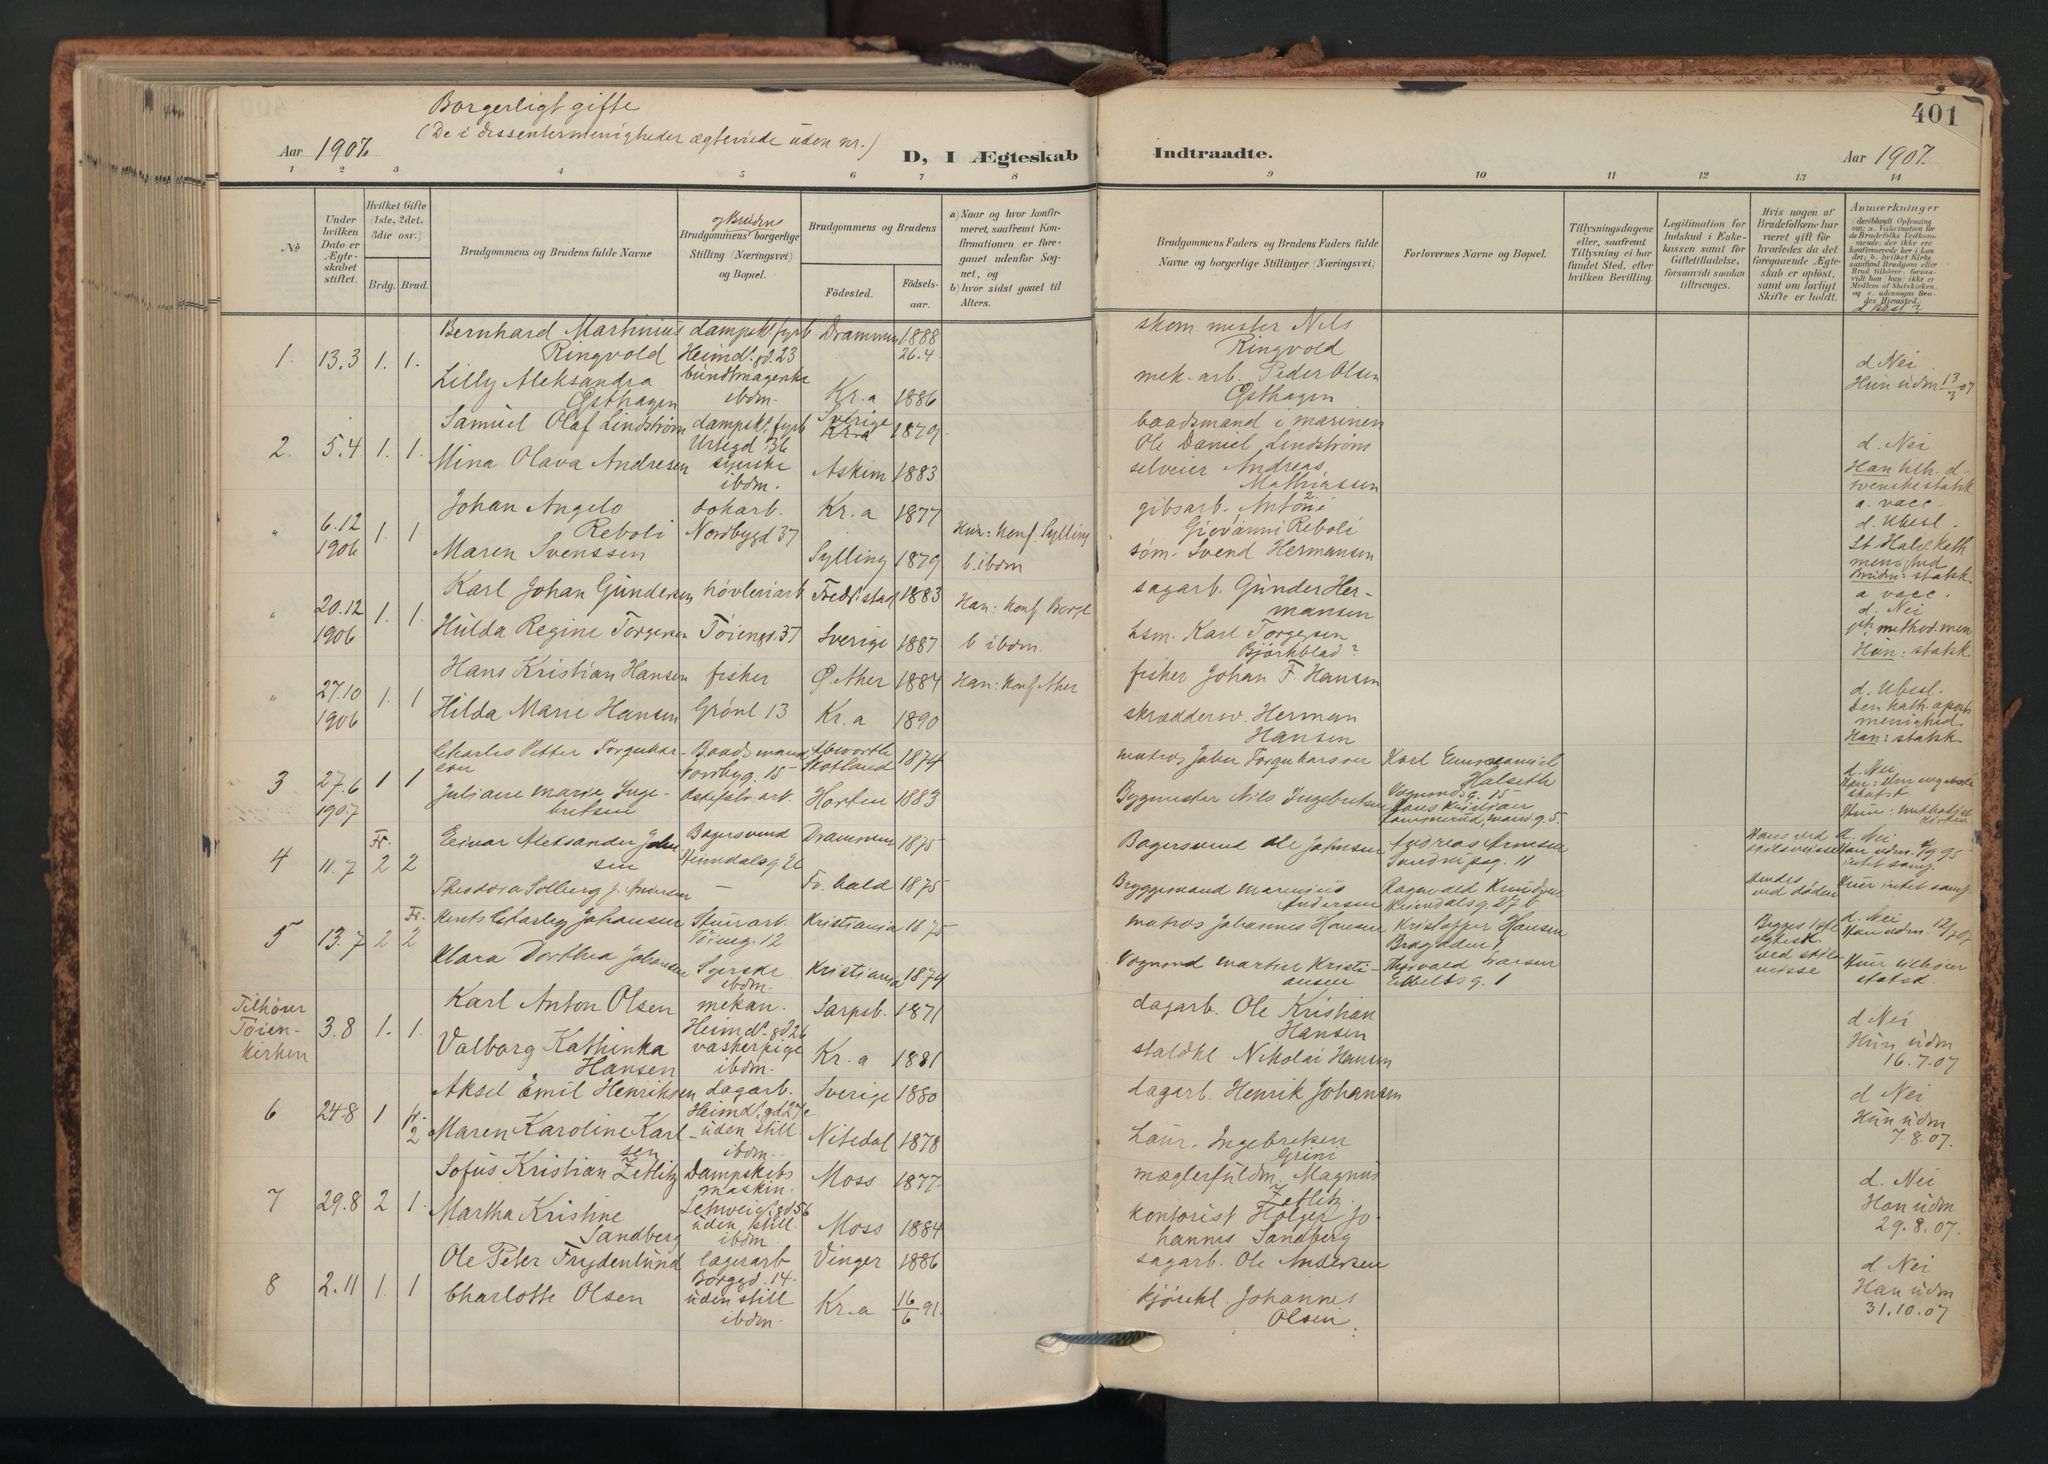 Borgerligt gifte
(De i dissentermenigheder ægteviede uden nr.)
Aar 1907.
D, I Ægteskab
Indtraadte.
Aar 1907.
401
1 2 3 4 5 6 7 8 9 10 11 12 13 14
No
Under hvilken Dato er Ægteskabet stiftet.
Hvilket Gifte (1ste, 2det, 3die osv.)
Brdg. Brud.
Brudgommens og Brudens fulde Navne
og Brudens
Brudgommens borgerlige Stilling (Næringsvei) og Bopæl.
Brudgommens og Brudens
Födested. Födselsaar.
a) Naar og hvor konfirmeret, saafremt Konfirmationen er foregaaet udenfor Sognet, og
b) hvor sidst gaaet til Alters.
Brudgommens Faders og Brudens Faders fulde Navne og borgerlige Stillinger (Næringsvei)
Forlovernes Navne og Bopæl.
Tillysningsdagene eller, saafremt Tillysning ei har fundet Sted, efter hvilken Bevilling.
Legitimation for Indskud i Enkekassen samt for Giftetilladelse, forsaavidt saadan tiltrænges.
Hvis nogen af Brudefolkene har været gift för hvorledes da det foregaaende Ægteskab er oplöst, samt om lovligt Skifte er holdt.
Anmærkninger
d besl?
1. 13.3 1. 1.
Bernhard Martinius Ringvold
dampsk. fyrb. Heimd. gd. 23
Drammen 1888 26.4
skom. mester Nils Ringvold
Lilly Aleksandra Østhagen
buntmagerske ibdm.
Kr.a 1886
mek. arb. Peder Olsen Østhagen
d Nei
Hun udm 13/3 07
2. 5.4 1. 1.
Samuel Olaf Lindstrøm
dampsk. fyrb Urtegd 36
Sverige 1879.
baadsmand i marinen Ole Daniel Lindstrøm
Mina Olava Andresen
syerske ibdm.
Askim 1883.
selveier Andreas Mathiassen
d. Nei
Han tilh. d. svenske statsk
" 6.12 1906 1. 1.
Johan Angelo Reboli
Nordbygd 37
Kr.a 1877
gibsarb. Antoni Giovanni Reboli
Maren Svenssen
Sylling 1879
Hun: Konf. Sylling
b. ibdm
søm. Svend Hermansen
a. vacc.
d. Ubesl.
St. Halv. kath menighed
Bruden: statsk.
" 20.12 1906 1. 1.
Karl Johan Gundersen
høvleriarb
Fredrikstad 1883
Han: Konf. Borge
sagarb. Gunder Hermansen
Hilda Regine Torgersen
Tøiengd. 37
Sverige 1887.
b ibdm.
hsm. Karl Torgersen Bjørkblad?
a vacc.
d. Nei
method. men
Hun: statsk
" 27.10 1906 1. 1
Hans Kristian Hansen
fisker
Ø. Aker 1884
Han: Konf. Aker
fisker Johan F. Hansen
Hilda Marie Hansen
Grønl 13
Kr.a 1890
skræddersv. Herman Hansen
d. Ubesl.
Den kath. apost. menighed.
Han: statsk
3 27.6 1907 1 1
Charles Petter Forquharson
Baadsmand Nordbyg. 15
Skotland 1874
matros John Forquharson
Karl Emmanuel Halseth Vognmdsg. 15
Juliane Marie Ingebretsen
Horten 1883
Bygmester Nils Ingebretsen
Hans Kristian
d. Nei
4 11.7 Fr. 2 2
Einar Aleksander Johnsen
Bagersvend Heimdalsg 26
Drammen 1875
Bagersvend Ole Johnsen
Andreas Arnesen
Theodora Solberg f. Andersen
Fr. hald 1875
Bryggemand Marenius Andersen
Ragnvald Knudsen Heimdalsg. 27 b
Hans ved skilsmisse
Hendes ved døden
d. Nei
5 13.7 2 Fr. 2
Charley Johansen
Stuerarb. Tøieng. 12
Kristiania 1875
matros Johannes Hansen
Kristoffer Hansen
Klara Dorthea Johansen
Syerske ibdm.
Kristiania 1874
Vognmd Martin Kristiansen
Thorvald Larsen
ved skilsmisse
d. Nei
Hun udm. 12/7 07
Hun tilhører statsk.
Tilhører Tøienkirken 3.8 1. 1.
Karl Anton Olsen
mekan. Heimd. gd 26
Sarpsb. 1871
dagarb. Ole Kristian Hansen
Valborg Kathinka Hansen
vaskeripige ibdm.
Kr.a 1881
staldkl Nikolai Hansen
d Nei
Hun udm 16.7.07
6 24.8 1 fr. 2
Aksel Emil Henriksen
dagarb. Heimd. gd 27 c
Sverige 1880
dagarb. Henrik Johansen
Maren Karoline Karlsen
uden still ibdm.
Nitedal 1878
Laur. Ingebretsen Grini
d Nei
Hun udm 7.8.07.
7 29.8 2 1.
Sofus Kristian Zetlitz
Dampskibs maskin. Schweig. gd 56
Moss 1877.
mæglerfuldm. Magnus Zetlitz.
Martha Kristine Sandberg
uden still ibdm.
Moss 1884
kontorist Holger Johannes Sandberg
d. Nei
Han udm 29.8.07.
8 2.11 1. 1
Ole Peter Frydenlund
lagerarb Borggd. 14
Vinger 1886
sagarb. Ole Andersen
Charlotte Olsen
uden still ibdm
Kr.a 16/6 91.
kjørekl Johannes Olsen
d Nei
Han udm 31.10.07